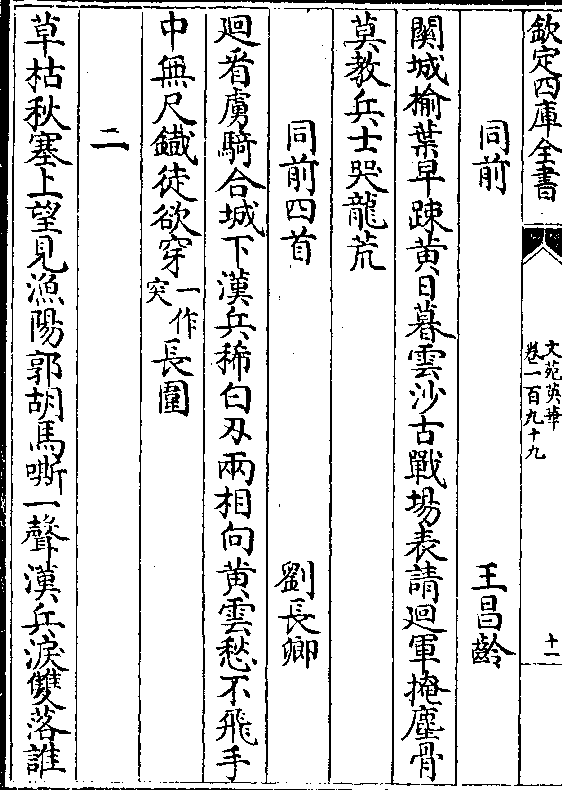 欽定四庫全書
文苑英華
卷一百九十九
十一
同前 王昌齡
關城榆葉早踈黄日暮雲沙古戰場表請迴軍掩塵骨
莫教兵士哭龍荒
同前四首 劉長卿
迴看虜騎合城下漢兵稀白刃兩相向黄雲愁不飛手
中無尺鐡徒欲穿一作突長圍
二
草枯秋塞上望見漁陽郭胡馬嘶一聲漢兵淚雙落誰